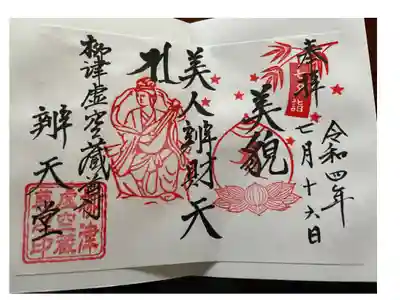 令和四年
七月十六日
奉拝
美貌
美人辨財天
柳津虚空藏尊
辨天堂